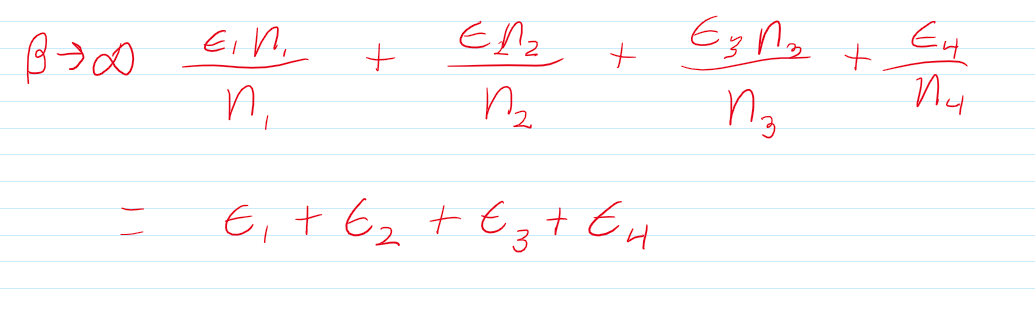 β→∞ ϵ₁n₁/n₁ + ϵn₂/n₂ + ϵ₃n₃/n₃ + ϵ₄/n₄
= ϵ₁ + ϵ₂ + ϵ₃ + ϵ₄